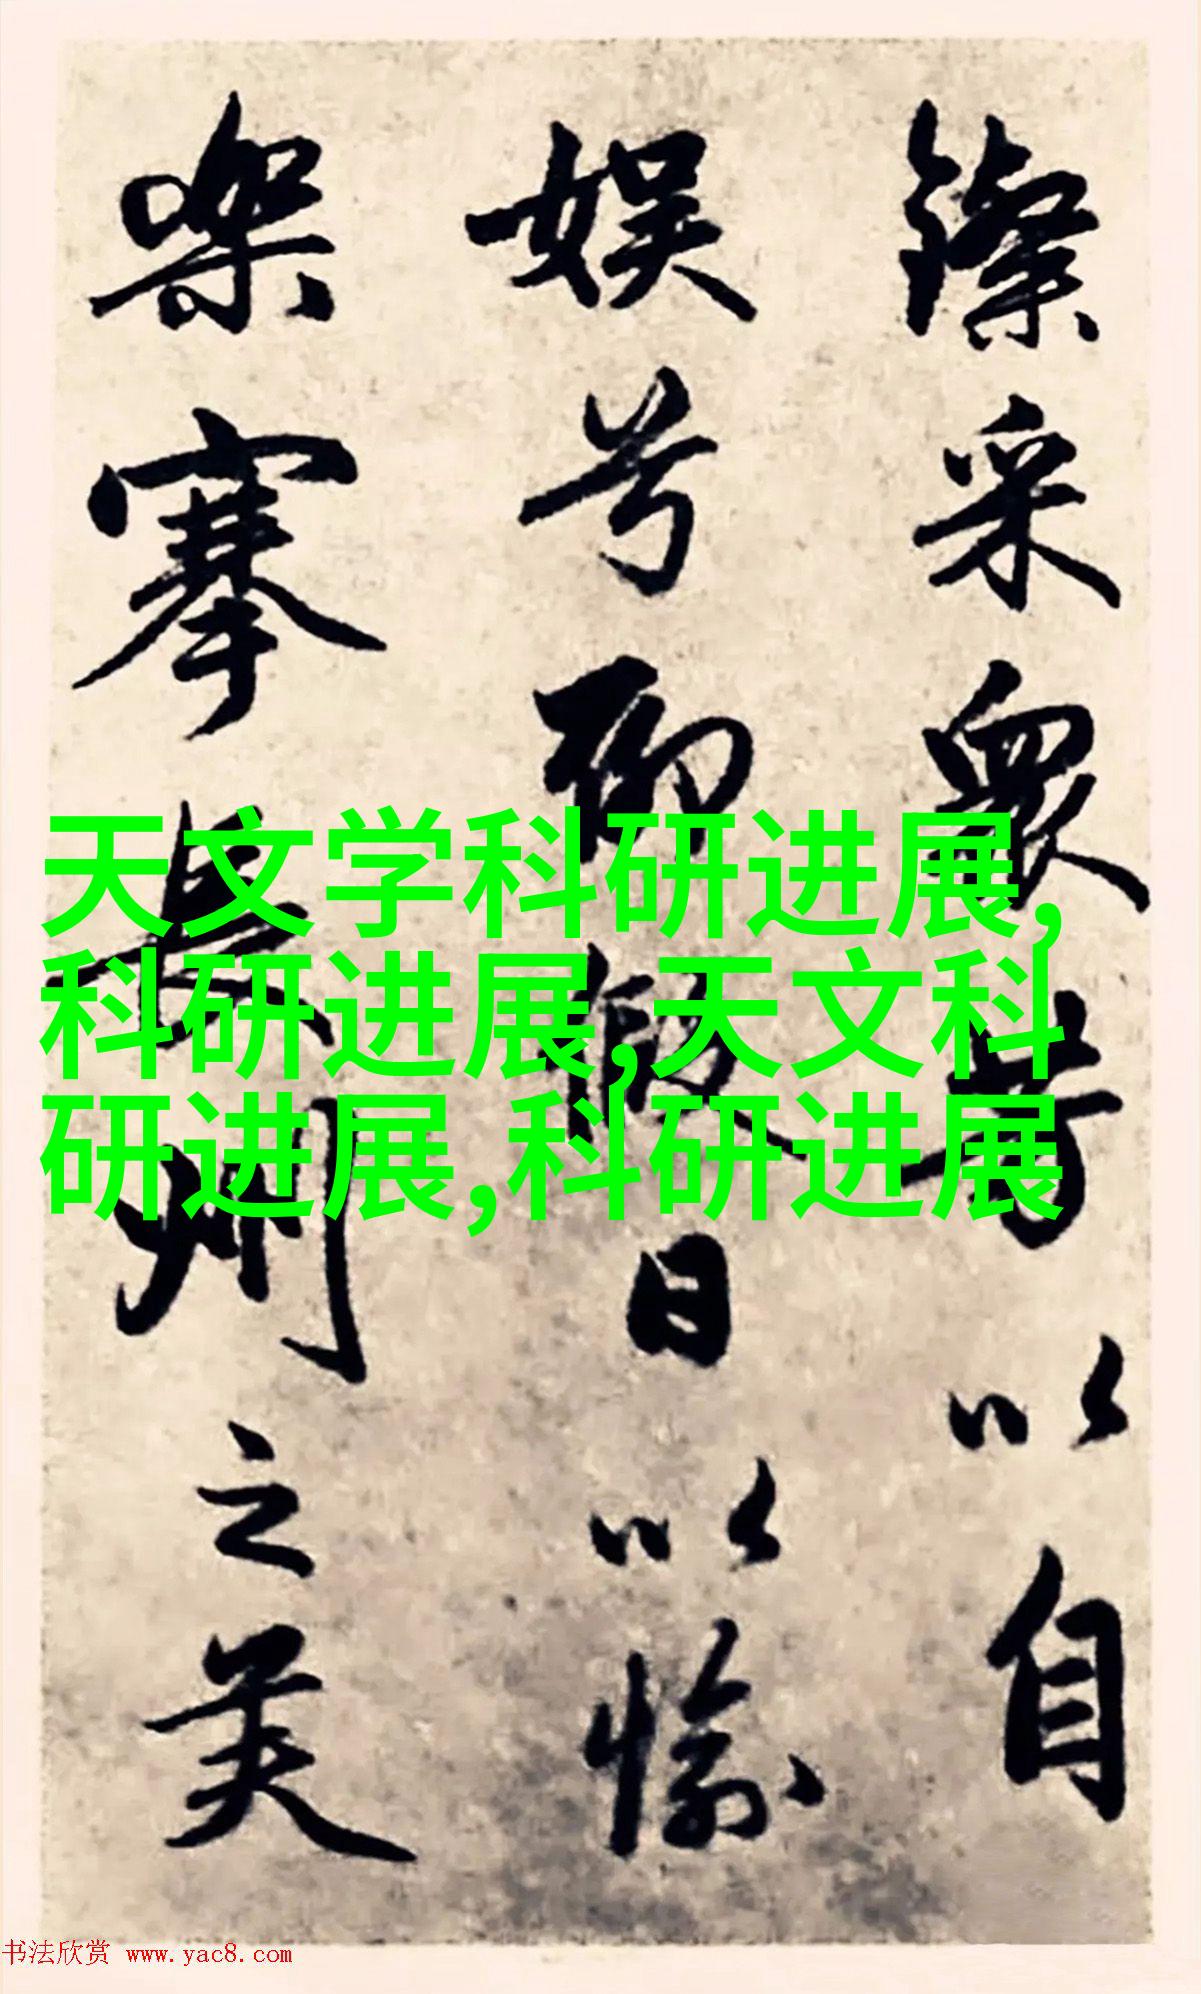 采衆芳以自
娱兮聊假日以愉
樂搴長州之美
天文学科研进展,
科研进展,天文科
研进展,科研进展
书法欣赏 www.yac8.com